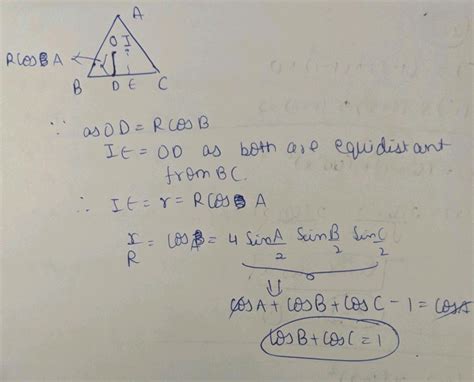 A
O I
RCosA
B D E C
∵ as OD = RCosB
IE = OD as both are equidistant
from BC.
∴ IE = r = RCos A
r/R = CosA = 4 Sin A/2 Sin B/2 Sin C/2
CosA + CosB + CosC - 1 = CosA
CosB + CosC = 1